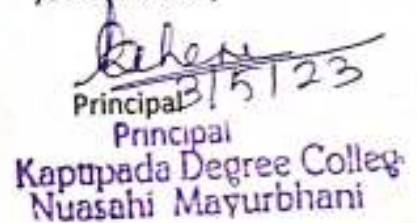 Principal
3/5/23
Principal
Kaptipada Degree Colleg
Nuasahi Mayurbhanj